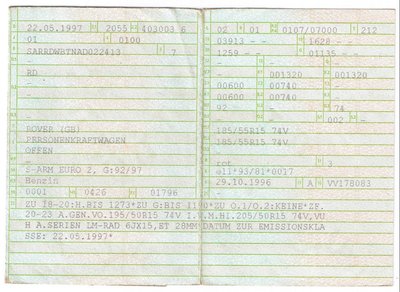 22.05.1997 2055 403003 6
01 0100
SARRDWBTNAD022413 7
- -
RD
- -
ROVER (GB)
PERSONENKRAFTWAGEN
OFFEN
S-ARM EURO 2, G:92/97
Benzin
0001 0426 01796
02 01 0107/07000 212
03913 - - 1628 - -
1259 - - 01135 - -
- - -
- 001320 001320
00600 00740 - -
00600 00740 - -
92 74
- - 002 -
185/55R15 74V
185/55R15 74V
- -
rot 3
e11*93/81*0017
29.10.1996 A VV178083
ZU 18-20:H.BIS 1273*ZU G:BIS 1190*ZU O.1/O.2:KEINE*ZF.
20-23 A.GEN.VO.195/50R15 74V I.V.M.HI.205/50R15 74V,VU
H A.SERIEN LM-RAD 6JX15,ET 28MM*DATUM ZUR EMISSIONSKLA
SSE: 22.05.1997*